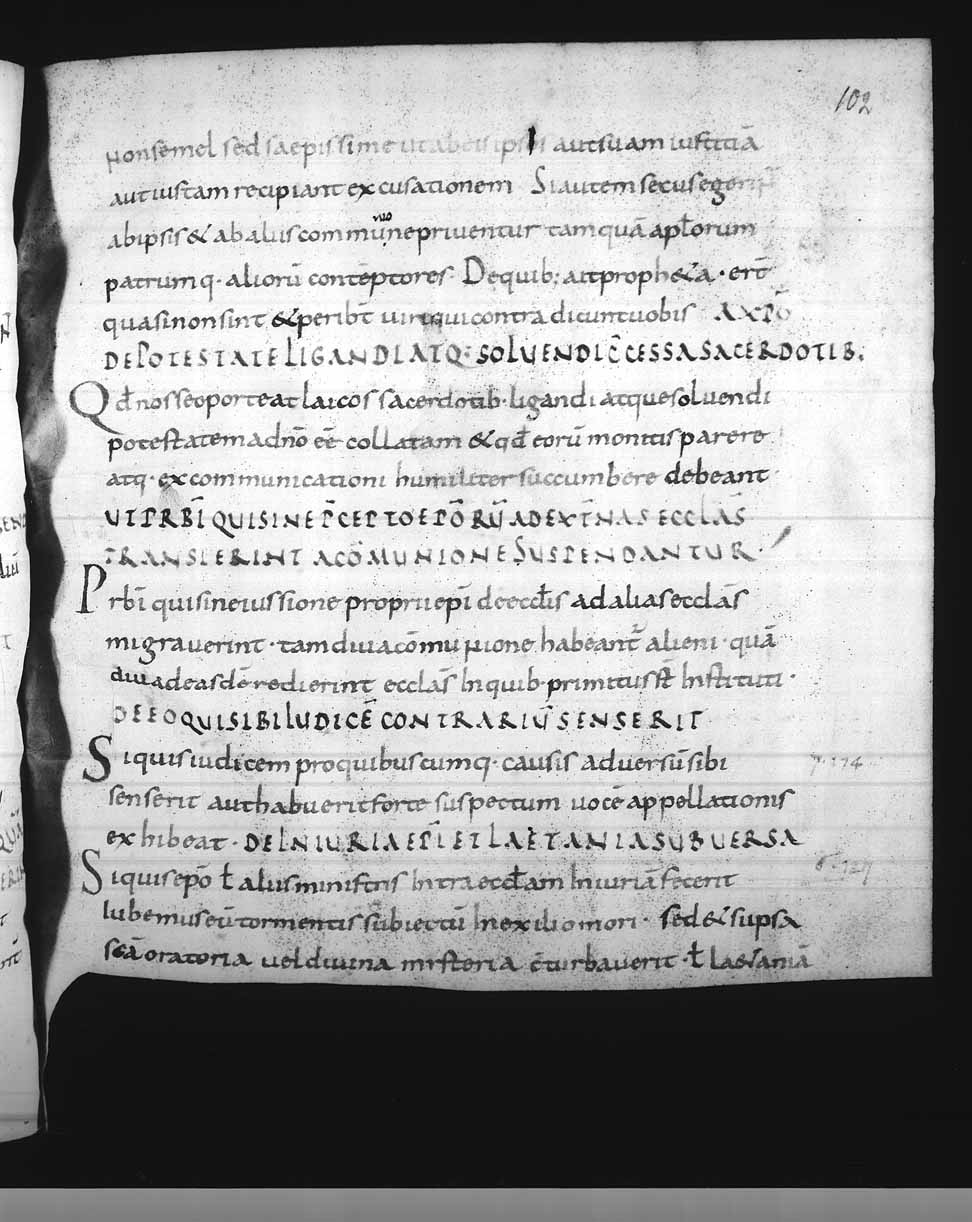 102
non semel sed saepissime ut ab eis ipsis aut suam iustitiā
aut iustam recipiant excusationem Si autem secus egerint
ab ipsis & ab aliis commune priventur tamquā apłorum
patrumq· aliorū contēptores· De quib; ait proph&a· ert̄
quasi non sint & peribt̄ viri qui contradicunt vobis
DE POTESTATE LIGANDI ATQ· SOLVENDI C̄CESSA SACERDOTIB;
Qđ nosse oporteat laicos sacerdotib· ligandi atque solvendi
potestatem a dn̄o eē collatam & qđ eorū monitis parere
atq· excommunicationi humiliter succumbere debeant
UT PRBĪ QUI SINE P̄CEPTO EPŌRŪ AD EXT̄NAS ECCLĀS
TRANSIERINT A COM̄UNIONE SUSPENDANTUR·
Prbī qui sine iussione proprii epī de eccłis ad alias ecclās
migraverint· tamdiu a cōmunione habeant̄ alieni· quā
diu ad easdē redierint ecclās In quib· primitus st̄ Instituti·
DE EO QUI SIBI IUDICĒ CONTRARIŪ SENSERIT
Si quis iudicem pro quibuscumq· causis adversū sibi
senserit aut habuerit forte suspectum vocē appellationis
exhibeat· DE INIURIA EPĪ ET LAETANIA SUBVERSA
Si quis epō ł aliis ministris Intra eccłam Iniuriā fecerit
Iubemus eū tormentis subiectū In exilio mori· sed & si ipsa
scā oratoria vel divina misteria c̄turbaverit· ł la&aniā